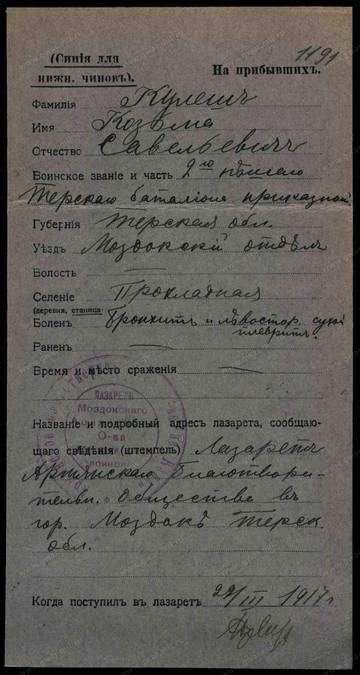 1191
(Синія для
нижн. чиновъ).
На прибывшихъ.
Фамилія Кулешъ
Имя Козьма
Отчество Савельевичъ
Воинское званіе и часть 2го пѣшаго
Терскаго баталіона приказной
Губернія Терская обл.
Уѣздъ Моздокскій отдѣлъ
Волость —
Селеніе Прохладная
(деревня, станица)
Боленъ Бронхитъ и лѣвостор. сухой
плевритъ.
Раненъ —
Время и мѣсто сраженія —
ЛАЗАРЕТЪ
Моздокскаго
О-ва
Названіе и подробный адресъ лазарета, сообщаю-
щаго свѣдѣнія (штемпель) Лазаретъ
Армянскаго Благотвори-
тельн. Общества въ
гор. Моздокѣ Терск.
обл.
Когда поступилъ въ лазаретъ 22/III 1917 г.